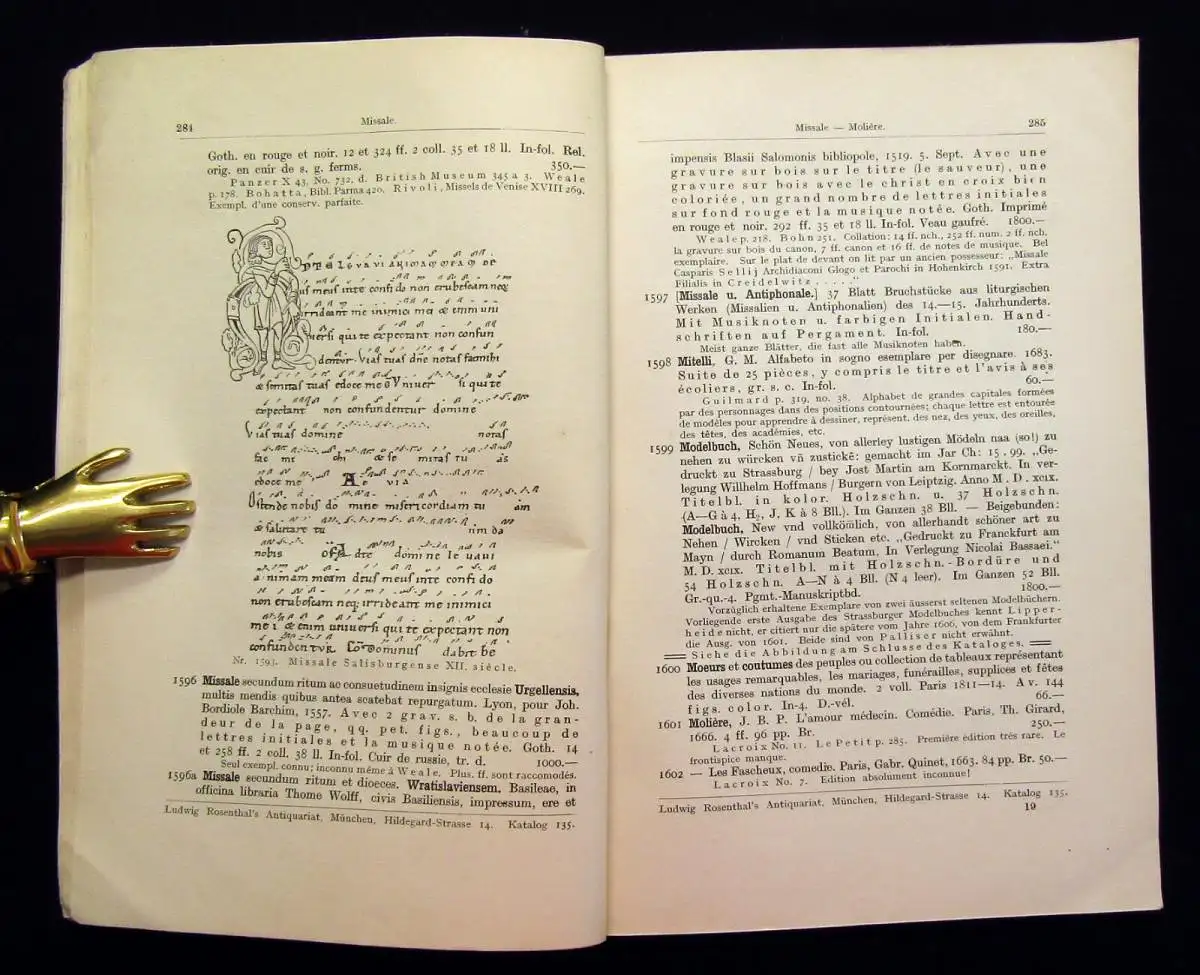 284
Missale.
Goth. en rouge et noir. 12 et 324 ff. 2 coll. 35 et 18 ll. In-fol. Rel.
orig. en cuir de s. g. ferms. 350.—
Panzer X 43, No. 732, d. British Museum 345 a 3. Weale
p. 178. Bohatta, Bibl. Parma 420. Rivoli, Missels de Venise XVIII 269.
Exempl. d'une conserv. parfaite.
us meus inte confido non erubescam neq;
irrideant me inimici mei & enim uni
qui te expectant non confun
dentur. Vias tuas dne notas fac mihi
& semitas tuas edoce me Univer si qui te
expectant non confundentur domine
Vias tuas domine notas
fac mi chi & se mitas tu as
edoce me A e via
Ostende nobis do mine misericordiam tu am
& salutare tu um da
nobis domine le vavi
animam meam deus meus inte confi do
non erubescam neq; irrideant me inimici
me i & enim universi qui te expectant non
confundentur. Dominus dabit be
Nr. 1593. Missale Salisburgense XII. siècle.
1596 Missale secundum ritum ac consuetudinem insignis ecclesie Urgellensis,
multis mendis quibus antea scatebat repurgatum. Lyon, pour Joh.
Bordiole Barchim, 1557. Avec 2 grav. s. b. de la gran-
deur de la page, qq. pet. figs., beaucoup de
lettres initiales et la musique notée. Goth. 14
et 258 ff. 2 coll. 38 ll. In-fol. Cuir de russie, tr. d. 1000.—
Seul exempl. connu; inconnu même à Weale. Plus. ff. sont raccomodés.
1596a Missale secundum ritum et dioeces. Wratislaviensem. Basileae, in
officina libraria Thome Wolff, civis Basiliensis, impressum, ere et
Ludwig Rosenthal's Antiquariat, München, Hildegard-Strasse 14. Katalog 135.
Missale — Molière.
285
impensis Blasii Salomonis bibliopole, 1519. 5. Sept. Avec une
gravure sur bois sur le titre (le sauveur), une
gravure sur bois avec le christ en croix bien
coloriée, un grand nombre de lettres initiales
sur fond rouge et la musique notée. Goth. Imprimé
en rouge et noir. 292 ff. 35 et 18 ll. In-fol. Veau gaufré. 1800.—
Weale p. 218. Bohn 251. Collation: 14 ff. nch., 252 ff. num. 2 ff. nch.
la gravure sur bois du canon, 7 ff. canon et 16 ff. de notes de musique. Bel
exemplaire. Sur le plat de devant on lit par un ancien possesseur: „Missale
Casparis Sellij Archidiaconi Glogo et Parochi in Hohenkirch 1591. Extra
Filialis in Creidelwitz . . . . .“
1597 [Missale u. Antiphonale.] 37 Blatt Bruchstücke aus liturgischen
Werken (Missalien u. Antiphonalien) des 14.—15. Jahrhunderts.
Mit Musiknoten u. farbigen Initialen. Hand-
schriften auf Pergament. In-fol. 180.—
Meist ganze Blätter, die fast alle Musiknoten haben.
1598 Mitelli, G. M. Alfabeto in sogno esemplare per disegnare. 1683.
Suite de 25 pièces, y compris le titre et l'avis à ses
écoliers, gr. s. c. In-fol. 60.—
Guilmard p. 319, no. 38. Alphabet de grandes capitales formées
par des personnages dans des positions contournées; chaque lettre est entourée
de modèles pour apprendre à dessiner, représent. des nez, des yeux, des oreilles,
des têtes, des académies, etc.
1599 Modelbuch, Schön Neues, von allerley lustigen Mödeln naa (so!) zu
nehen zu würcken vn̄ zustickē: gemacht im Jar Ch: 15.99. „Ge-
druckt zu Strassburg / bey Jost Martin am Kornmarckt. In ver-
legung Willhelm Hoffmans / Burgern von Leiptzig. Anno M. D. xcix.
Titelbl. in kolor. Holzschn. u. 37 Holzschn.
(A—G à 4, H₂, J, K à 8 Bll.). Im Ganzen 38 Bll. — Beigebunden:
Modelbuch, New vnd vollkōm̄lich, von allerhandt schöner art zu
Nehen / Wircken / vnd Sticken etc. „Gedruckt zu Franckfurt am
Mayn / durch Romanum Beatum, In Verlegung Nicolai Bassaei.“
M. D. xcix. Titelbl. mit Holzschn.-Bordüre und
54 Holzschn. A—N à 4 Bll. (N 4 leer). Im Ganzen 52 Bll.
Gr.-qu.-4. Pgmt.-Manuskriptbd. 1800.—
Vorzüglich erhaltene Exemplare von zwei äusserst seltenen Modelbüchern.
Vorliegende erste Ausgabe des Strassburger Modelbuches kennt Lipper-
heide nicht, er citiert nur die spätere vom Jahre 1606, von dem Frankfurter
die Ausg. von 1601. Beide sind von Palliser nicht erwähnt.
Siehe die Abbildung am Schlusse des Kataloges.
1600 Moeurs et coutumes des peuples ou collection de tableaux représentant
les usages remarquables, les mariages, funérailles, supplices et fêtes
des diverses nations du monde. 2 voll. Paris 1811—14. Av. 144
figs. color. In-4. D.-vél. 66.—
1601 Molière, J. B. P. L'amour médecin. Comédie. Paris, Th. Girard,
1666. 4 ff. 96 pp. Br. 250.—
Lacroix No. 11. Le Petit p. 285. Première édition très rare. Le
frontispice manque.
1602 — Les Fascheux, comedie. Paris, Gabr. Quinet, 1663. 84 pp. Br. 50.—
Lacroix No. 7. Edition absolument inconnue!
Ludwig Rosenthal's Antiquariat, München, Hildegard-Strasse 14. Katalog 135.
19